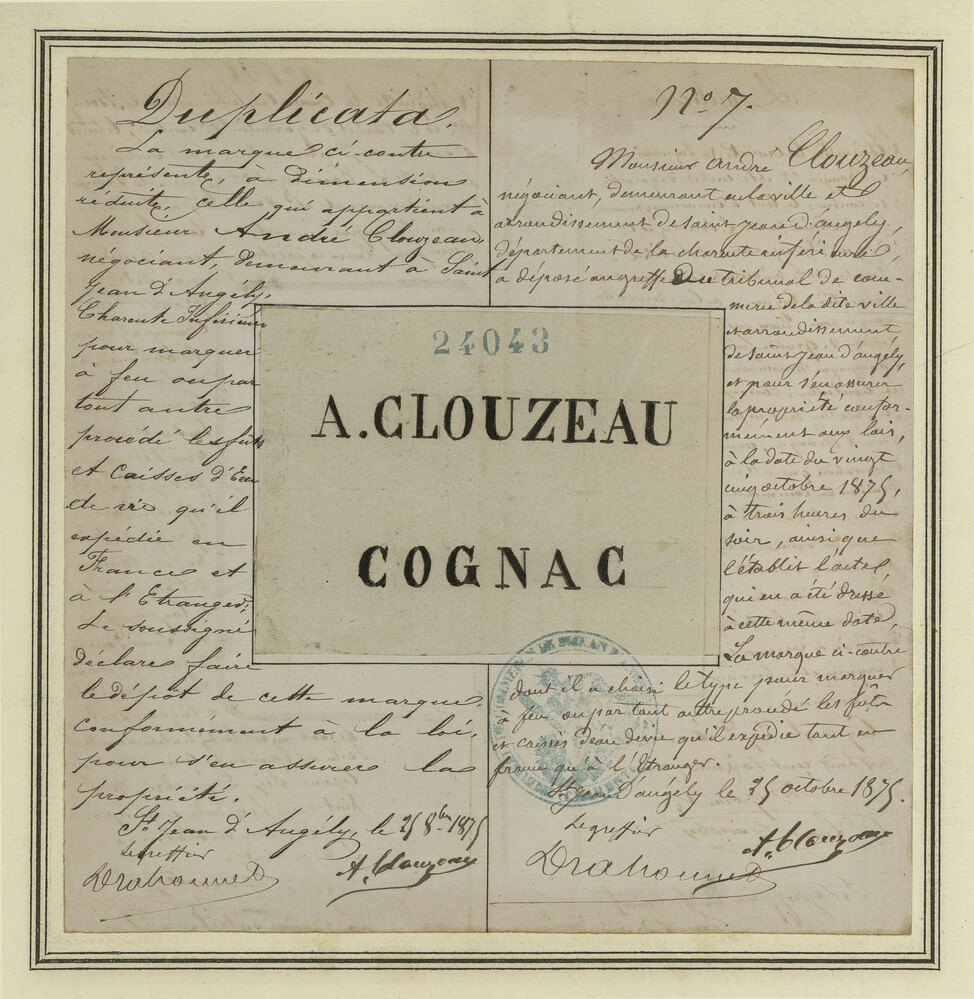 Duplicata.
La marque ci-contre
représente, à dimension
réduite, celle qui appartient à
Monsieur André Clouzeau,
négociant, demeurant à Saint
Jean d'Angély,
Charente Inférieure
pour marquer
à feu ou par
tout autre
procédé les fûts
et caisses d'Eau
de vie qu'il
expédie en
France et
à l'Etranger;
Le soussigné
déclare faire
le dépôt de cette marque,
conformément à la loi,
pour s'en assurer la
propriété.
St Jean d'Angély, le 25 8bre 1875
Le greffier
A. Clouzeau
24043
A. CLOUZEAU
COGNAC
No 7.
Monsieur André Clouzeau,
négociant, demeurant en la ville et
arrondissement de saint jean d'angely,
département de la charente inférieure,
a déposé au greffe Du tribunal de com-
merce de la dite ville
et arrondissement
de saint jean d'angély,
et pour s'en assurer
la propriété confor-
mément aux lois,
à la date du vingt
cinq octobre 1875,
à trois heures du
soir, ainsi que
l'établit l'acte
qui en a été dressé
à cette même date,
La marque ci-contre
dont il a choisi le type pour marquer
à feu ou par tout autre procédé les fûts
et caisses d'eau de vie qu'il expédie tant en
france qu'à l'étranger.
St Jean d'angély le 25 octobre 1875.
Le greffier
A. Clouzeau